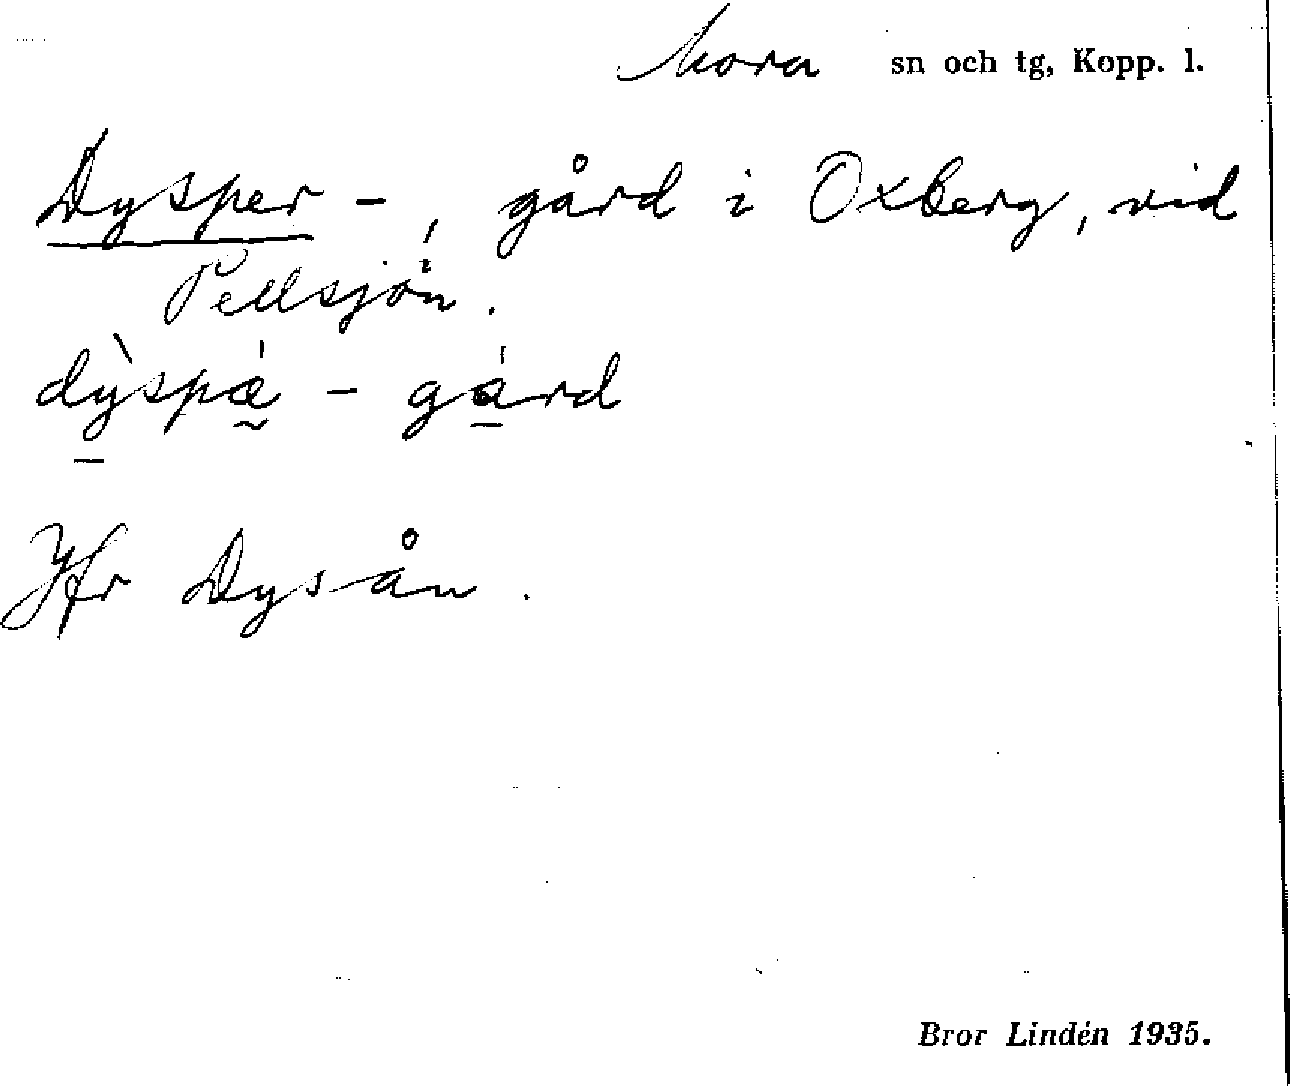 Mora sn och tg, Kopp. l.
Dysper -, gård i Oxberg, vid
Pellsjön.
dỳspä̀ - gård
Jfr Dysån.
Bror Lindén 1935.